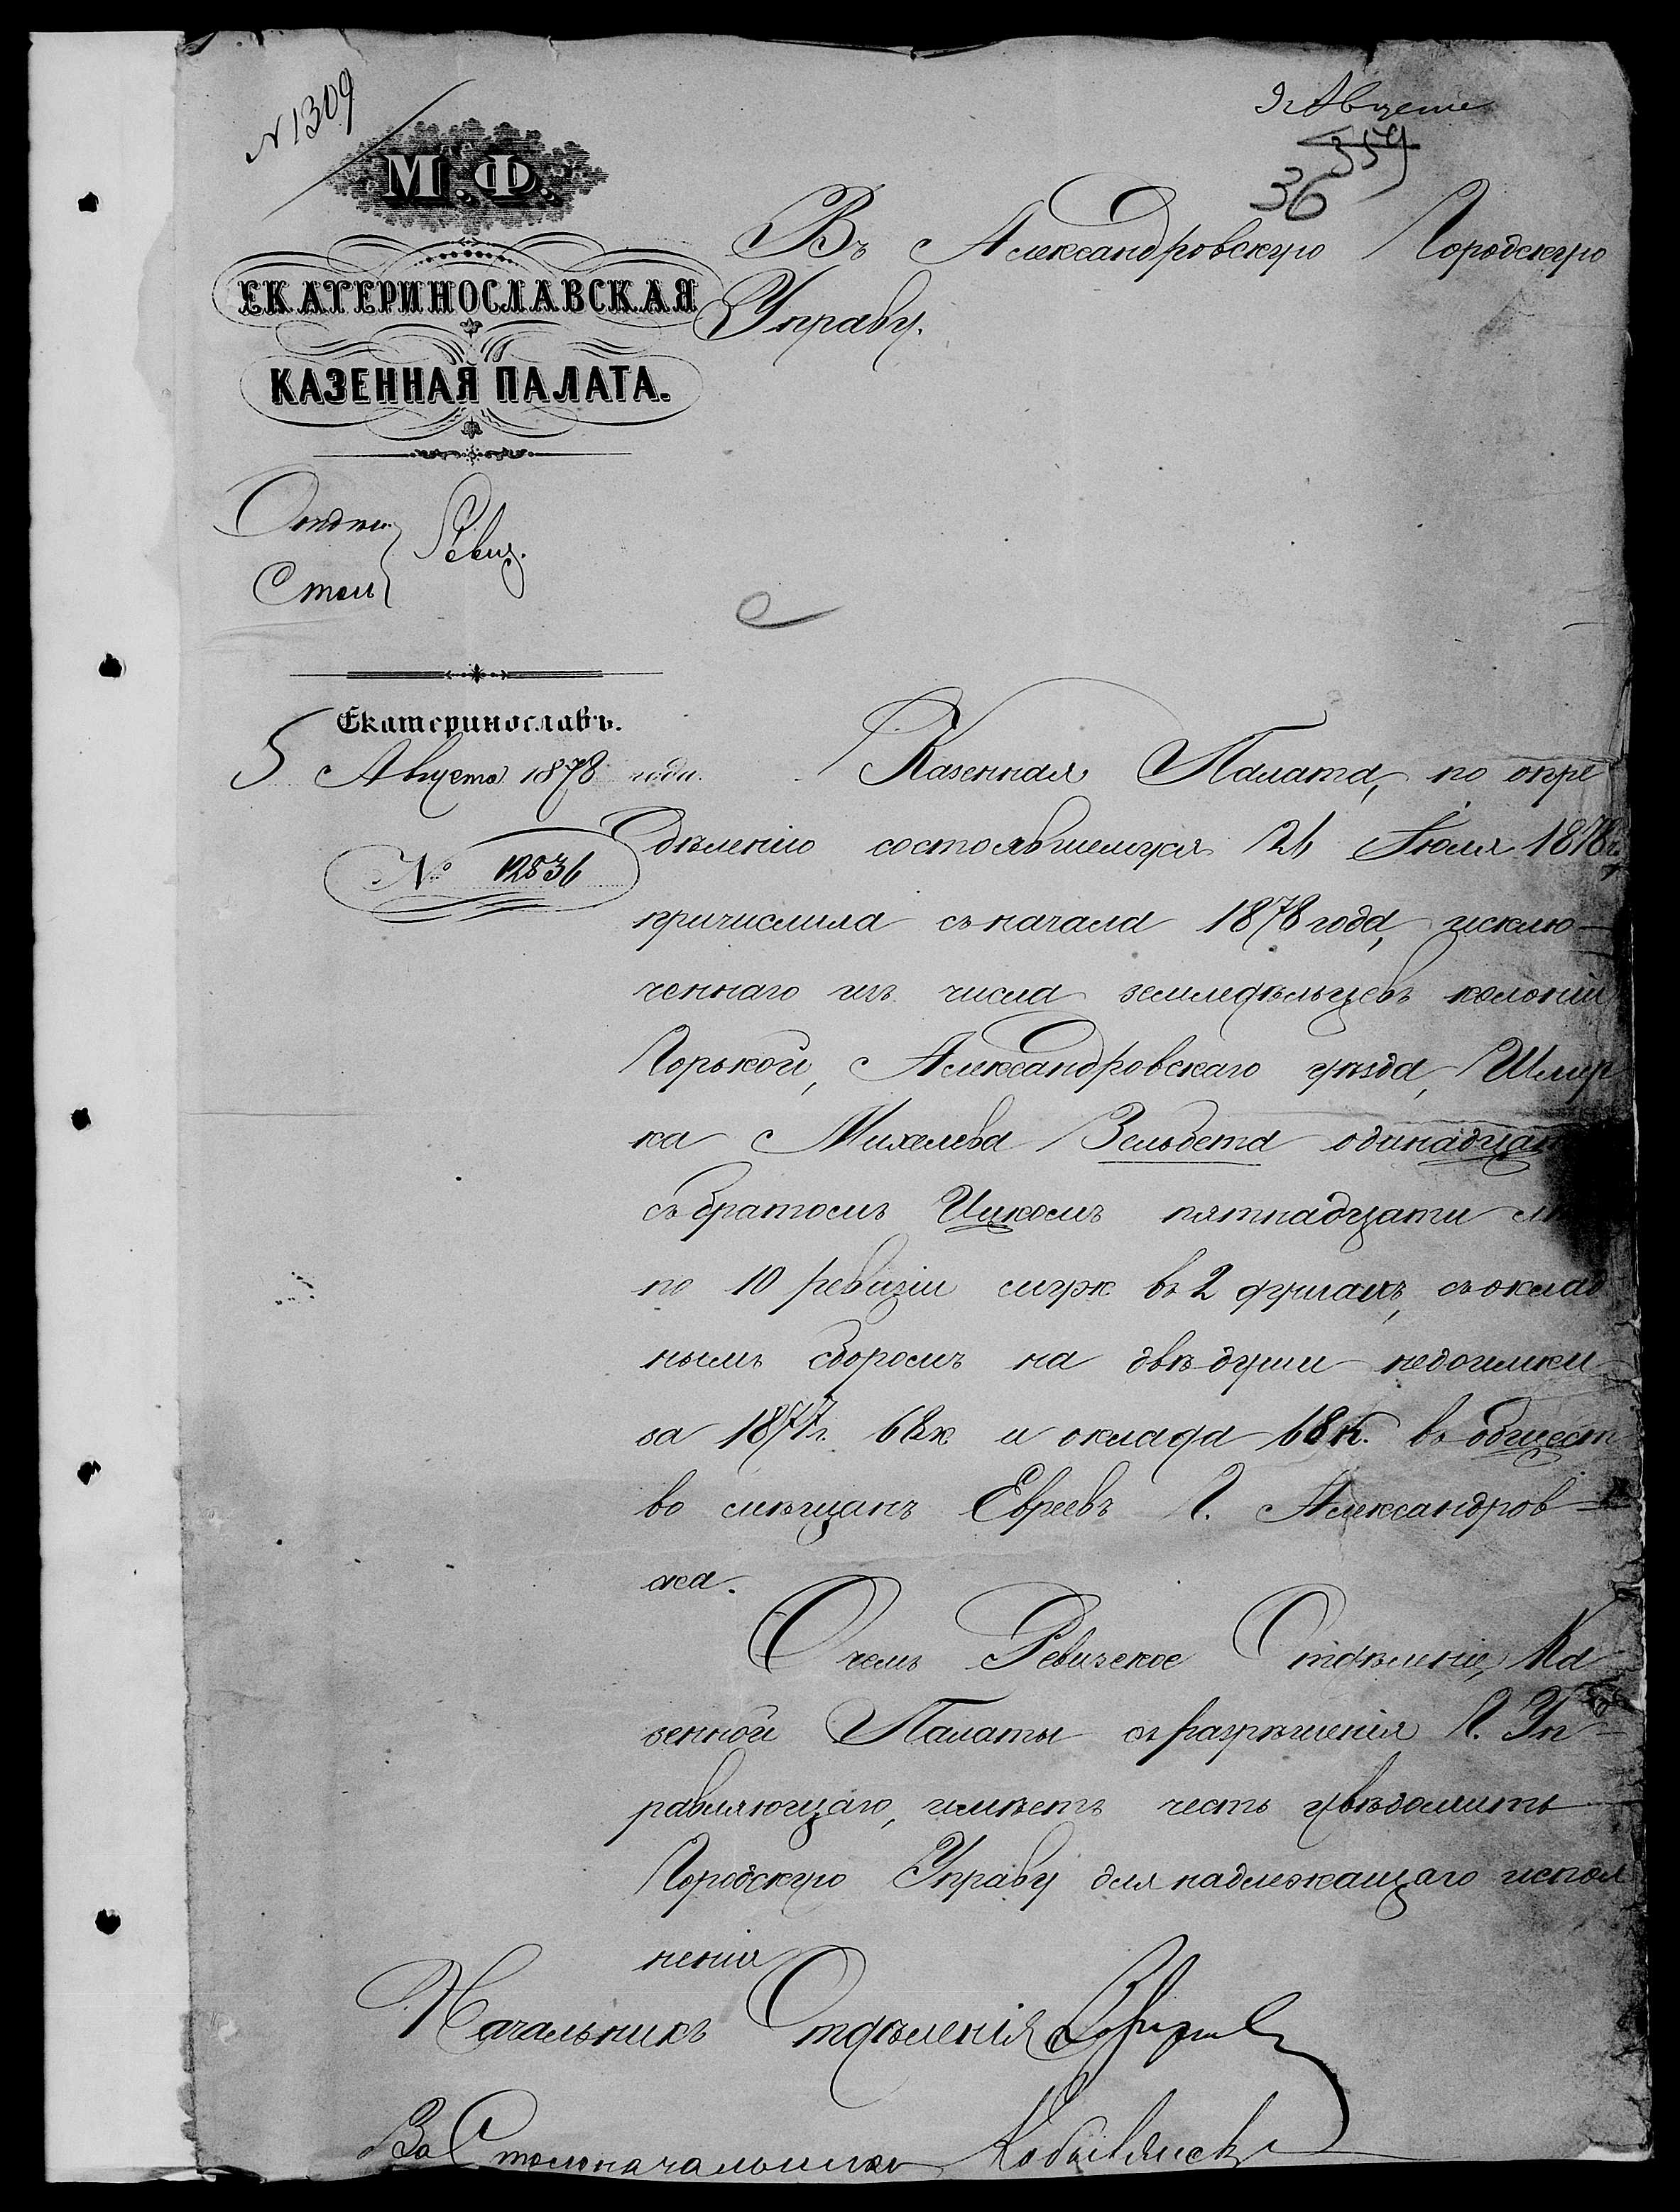 N 1309
9 Августа
359
36
М.Ф.
ЕКАТЕРИНОСЛАВСКАЯ
КАЗЕННАЯ ПАЛАТА.
Въ Александровскую Городскую
Управу.
Отдѣл.
Ревиз.
Столъ
Екатеринославъ.
5 Августа 1878 года.
№ 12836
Казенная Палата, по опре
дѣленію состоявшемуся 21 Іюля 1878 г.,
причислила съ начала 1878 года, исклю-
ченнаго изъ числа земледѣльцевъ колоніи
Горькой, Александровскаго уѣзда,
ка Михелева Зельбета одинадцати
съ братомъ Ицкомъ пятнадцати
по 10 ревизіи муж въ 2 душахъ, съ оклад
нымъ сборомъ на двѣ души недоимки
за 1877 г. 68 к и оклада 68 к. въ общест
во мѣщанъ Евреевъ Г. Александров-
ска.
О чемъ Ревизское Отдѣленіе, Ка
зенной Палаты съ разрѣшенія Г. Уп-
равляющаго, имѣетъ честь увѣдомить
Городскую Управу для надлежащаго испол
ненія
Начальникъ Отдѣленія
За Столоначальника